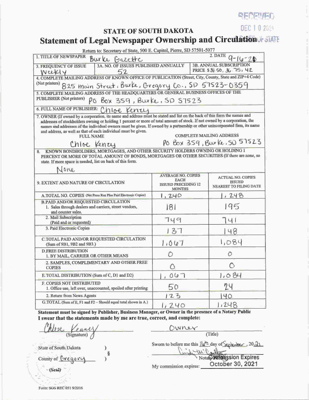 RECEIVED
DEC 10 2021
STATE OF SOUTH DAKOTA
Statement of Legal Newspaper Ownership and Circulation
Return to: Secretary of State, 500 E. Capitol, Pierre, SD 57501-5077
1. TITLE OF NEWSPAPER Burke Gazette
2. DATE
3. FREQUENCY OF ISSUE Weekly
3A. NO. OF ISSUES PUBLISHED ANNUALLY 52
3B. ANNUAL SUBSCRIPTION PRICE
4. COMPLETE MAILING ADDRESS OF KNOWN OFFICE OF PUBLICATION (Street, City, County, State and ZIP+4 Code) (Not printers)
825 main Street, Burke, Gregory Co., SD 57523-0359
5. COMPLETE MAILING ADDRESS OF THE HEADQUARTERS OR GENERAL BUSINESS OFFICES OF THE PUBLISHER (Not printer)
PO Box 359, Burke, SD 57523
6. FULL NAME OF PUBLISHER: Chloe Kenzy
7. OWNER (If owned by a corporation, its name and address must be stated and list on the back of this form the names and addresses of stockholders owning or holding 1 percent or more of total amount of stock. If not owned by a corporation, the names and addresses of the individual owners must be given. If owned by a partnership or other unincorporated firm, its name and address, as well as that of each individual must be given.
FULL NAME
COMPLETE MAILING ADDRESS
Chloe Kenzy
PO Box 359, Burke, SD 57523
8. KNOWN BONDHOLDERS, MORTGAGES, AND OTHER SECURITY HOLDERS OWNING OR HOLDING 1 PERCENT OR MORE OF TOTAL AMOUNT OF BONDS, MORTGAGES OR OTHER SECURITIES (If there are none, so state. If more space is needed, list on back of this form.
None
9. EXTENT AND NATURE OF CIRCULATION
AVERAGE NO. COPIES EACH ISSUES PRECEDING 12 MONTHS
ACTUAL NO. COPIES ISSUED NEAREST TO FILING DATE
A. TOTAL NO. COPIES 1,240 1,248
B. PAID AND/OR REQUESTED CIRCULATION
1. Sales through dealers and carriers, street vendors, and counter sales. 181 195
2. Mail Subscription (Paid and or requested) 749 741
3. Paid Electronic Copies 137 148
C. TOTAL PAID AND/OR REQUESTED CIRCULATION (Sum of 9B1, 9B2 and 9B3.) 1,067 1,084
D. FREE DISTRIBUTION
1. BY MAIL, CARRIER OR OTHER MEANS 0 0
2. SAMPLES, COMPLIMENTARY AND OTHER FREE COPIES 0 0
E. TOTAL DISTRIBUTION (Sum of C, D1 and D2) 1,067 1,084
F. COPIES NOT DISTRIBUTED
1. Office use, left over, unaccounted, spoiled after printing 50 24
2. Return from News Agents 123 140
G. TOTAL (Sum of E, F1 and F2 - Should equal total shown in A.) 1,240 1,248
Statement must be signed by Publisher, Business Manager, or Owner in the presence of a Notary Public
I swear that the statements made by me are true, correct, and complete:
Chloe Kenzy
Owner
(Signature)
(Title)
State of South Dakota
Sworn to before me this 16th day of September, 2021
County of Gregory
My commission expires:
Commission Expires
October 30, 2021
(Seal)